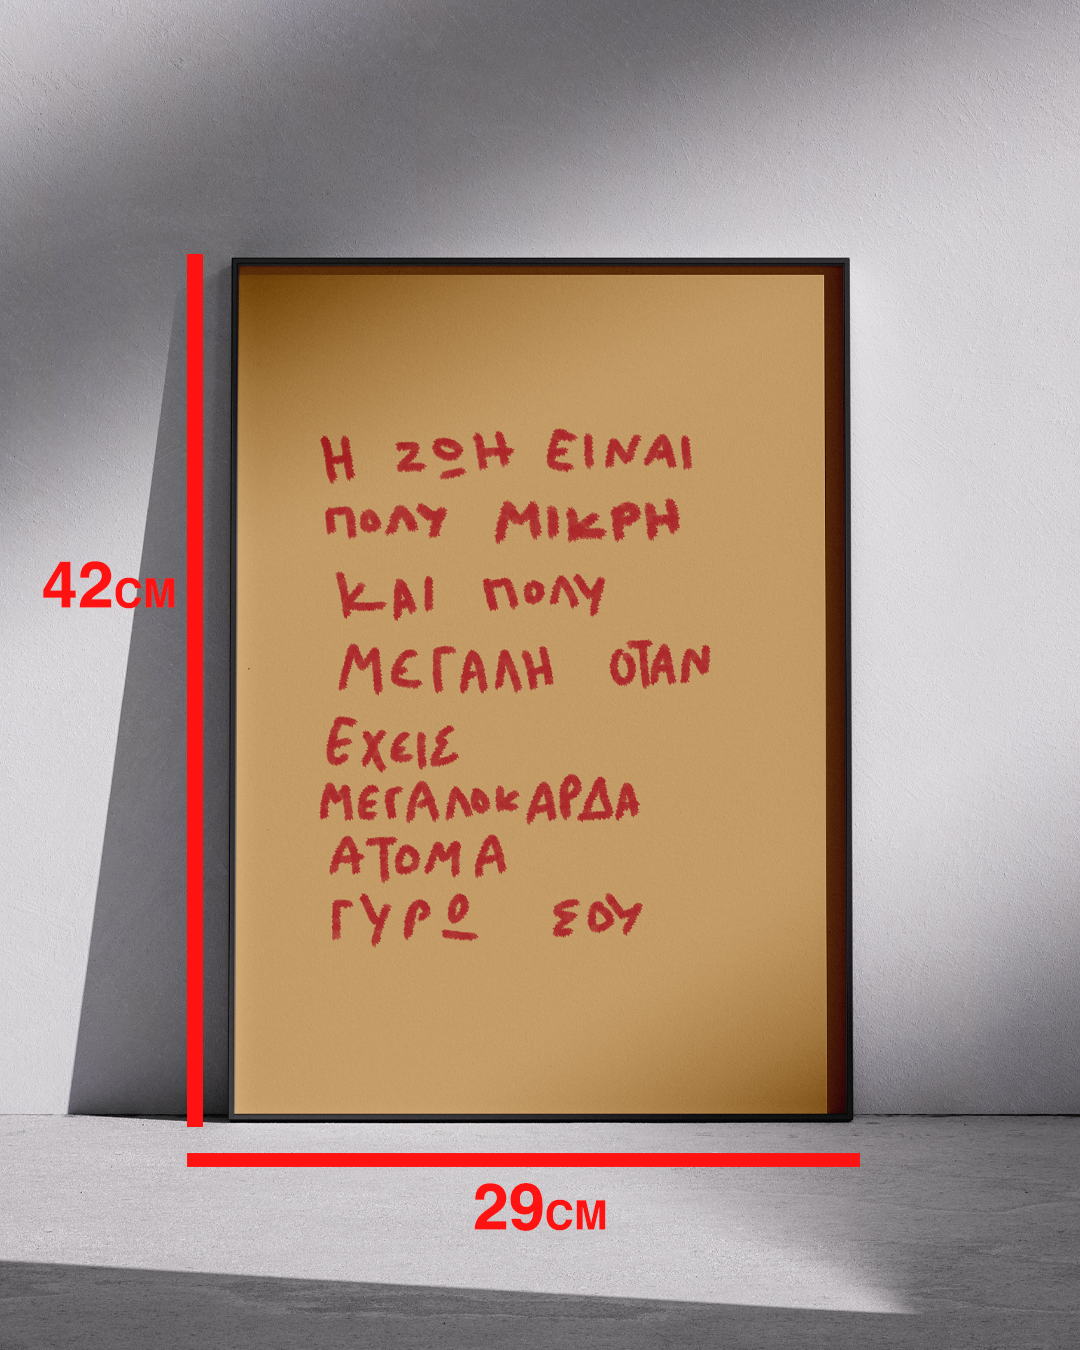 Η ΖΩΗ ΕΙΝΑΙ
ΠΟΛΥ ΜΙΚΡΗ
ΚΑΙ ΠΟΛΥ
ΜΕΓΑΛΗ ΟΤΑΝ
ΕΧΕΙΣ
ΜΕΓΑΛΟΚΑΡΔΑ
ΑΤΟΜΑ
ΓΥΡΩ ΣΟΥ
42CM
29CM